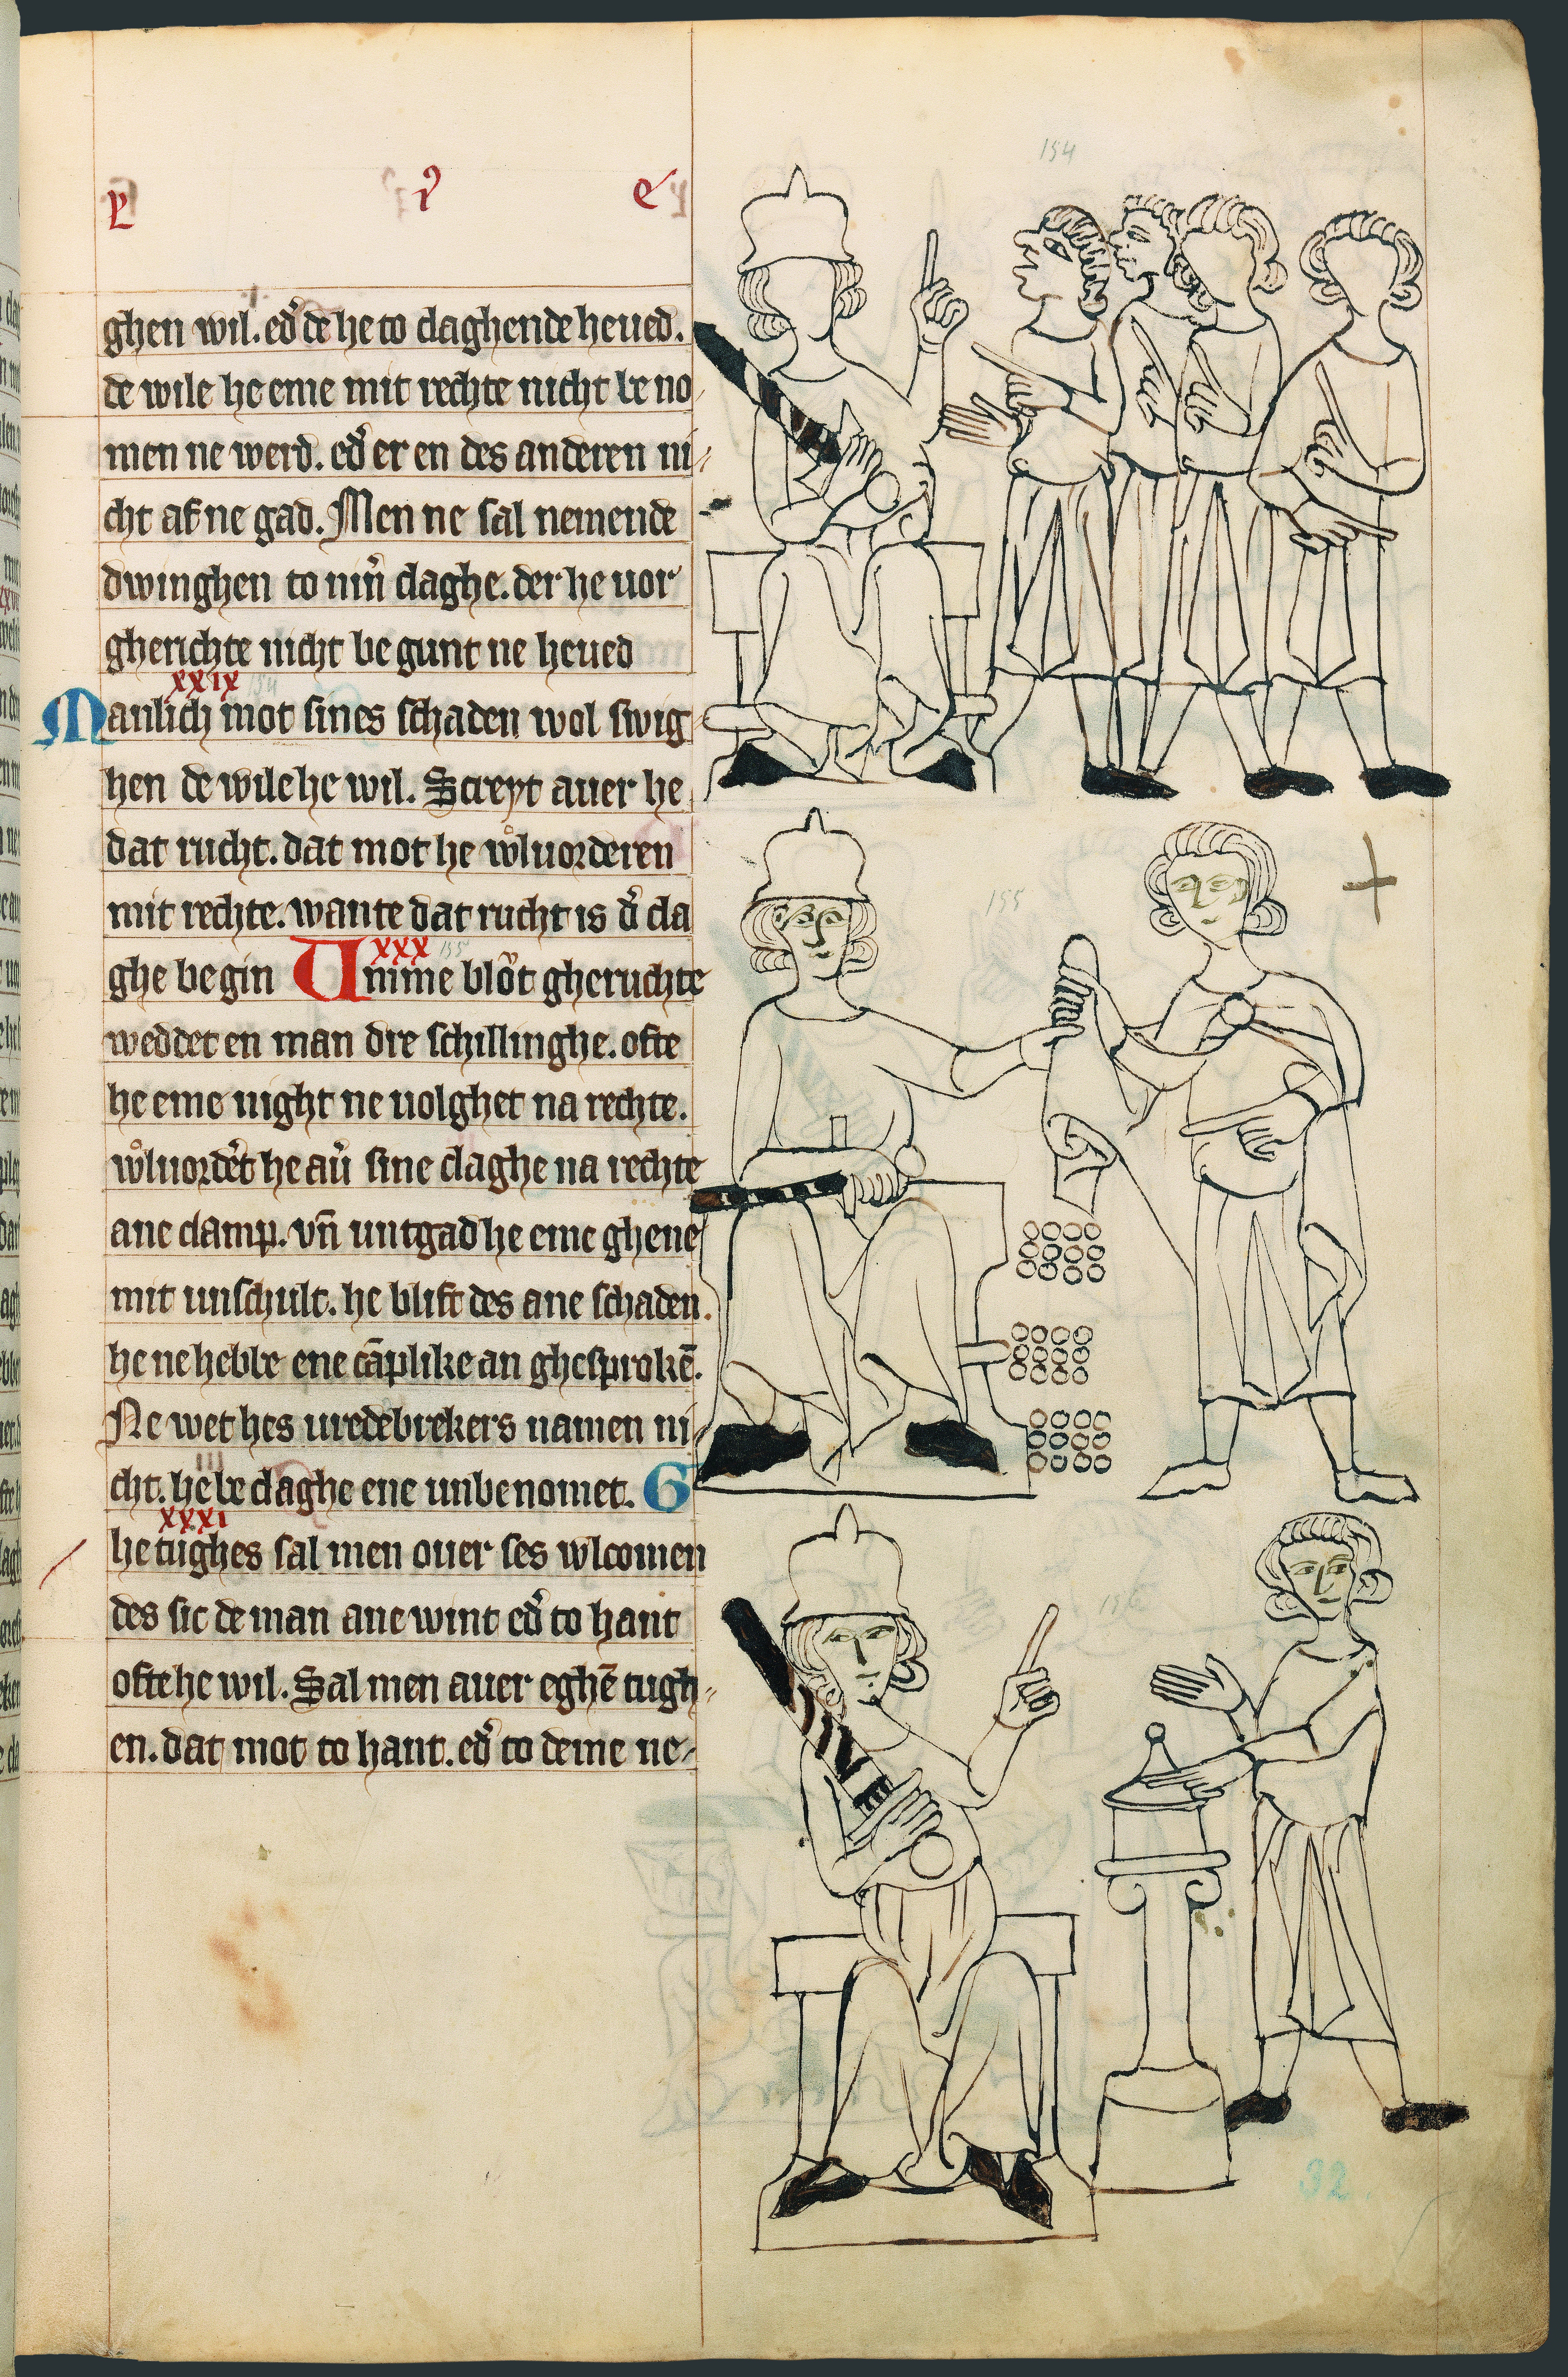 154
ghen wil. ed᷑ de he to claghende heued.
de wile he eme mit rechte nicht be no
men ne werd. ed᷑ er en des anderen ni
cht af ne gad. Men ne sal nemende
dwinghen to nin᷑ claghe. der he uor
gherichte nicht be gunt ne heued
xxix 154
Manlich mot sines schaden wol swig
hen de wile he wil. Screyt auer he
dat rucht. dat mot he wͦluorderen
mit rechte. wante dat rucht is d᷑ cla
ghe begin Umme blot gheruchte
xxx 155
weddet en man dre schillinghe. ofte
he eme night ne uolghet na rechte.
wͦluord᷑et he au᷑ sine claghe na rechte
ane camp. vn̄ untgad he eme ghene
mit unschult. he blift des ane schaden.
he ne hebbe ene cāplike an ghesprokē.
Ne wet hes uredebrekers namen ni
cht. he be claghe ene unbenomet. G
xxxi
hetughes sal men ouer ses wlcomen
des sic de man ane wint ed᷑ to hant
ofte he wil. Sal men auer eghē tugh
en. dat mot to hant. ed᷑ to deme ne
155
156
32.